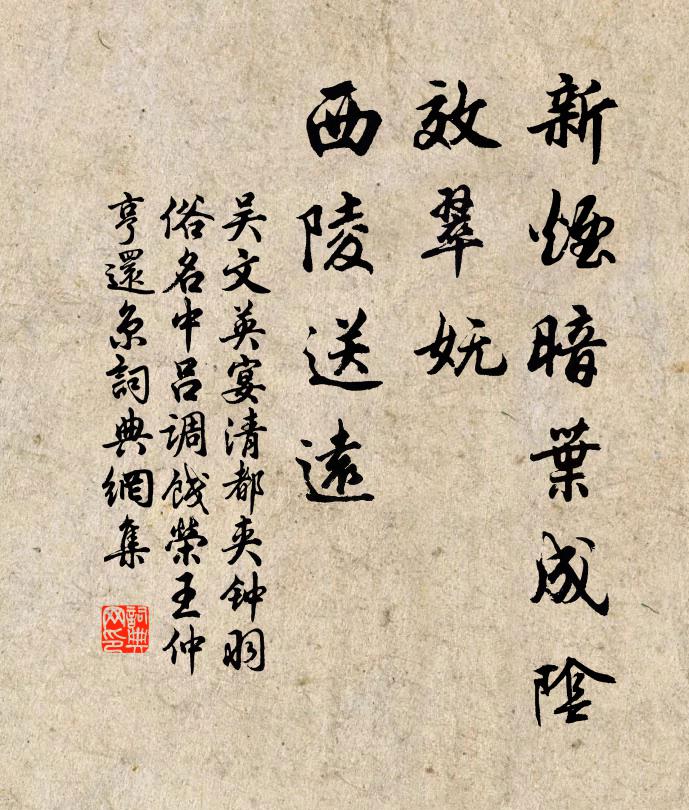 新煙暗葉成陰
效翠妩
西陵送遠
吴文英宴清都夹钟羽
俗名中吕调饯榮王仲
亨還京詞典網集
詞典
网印